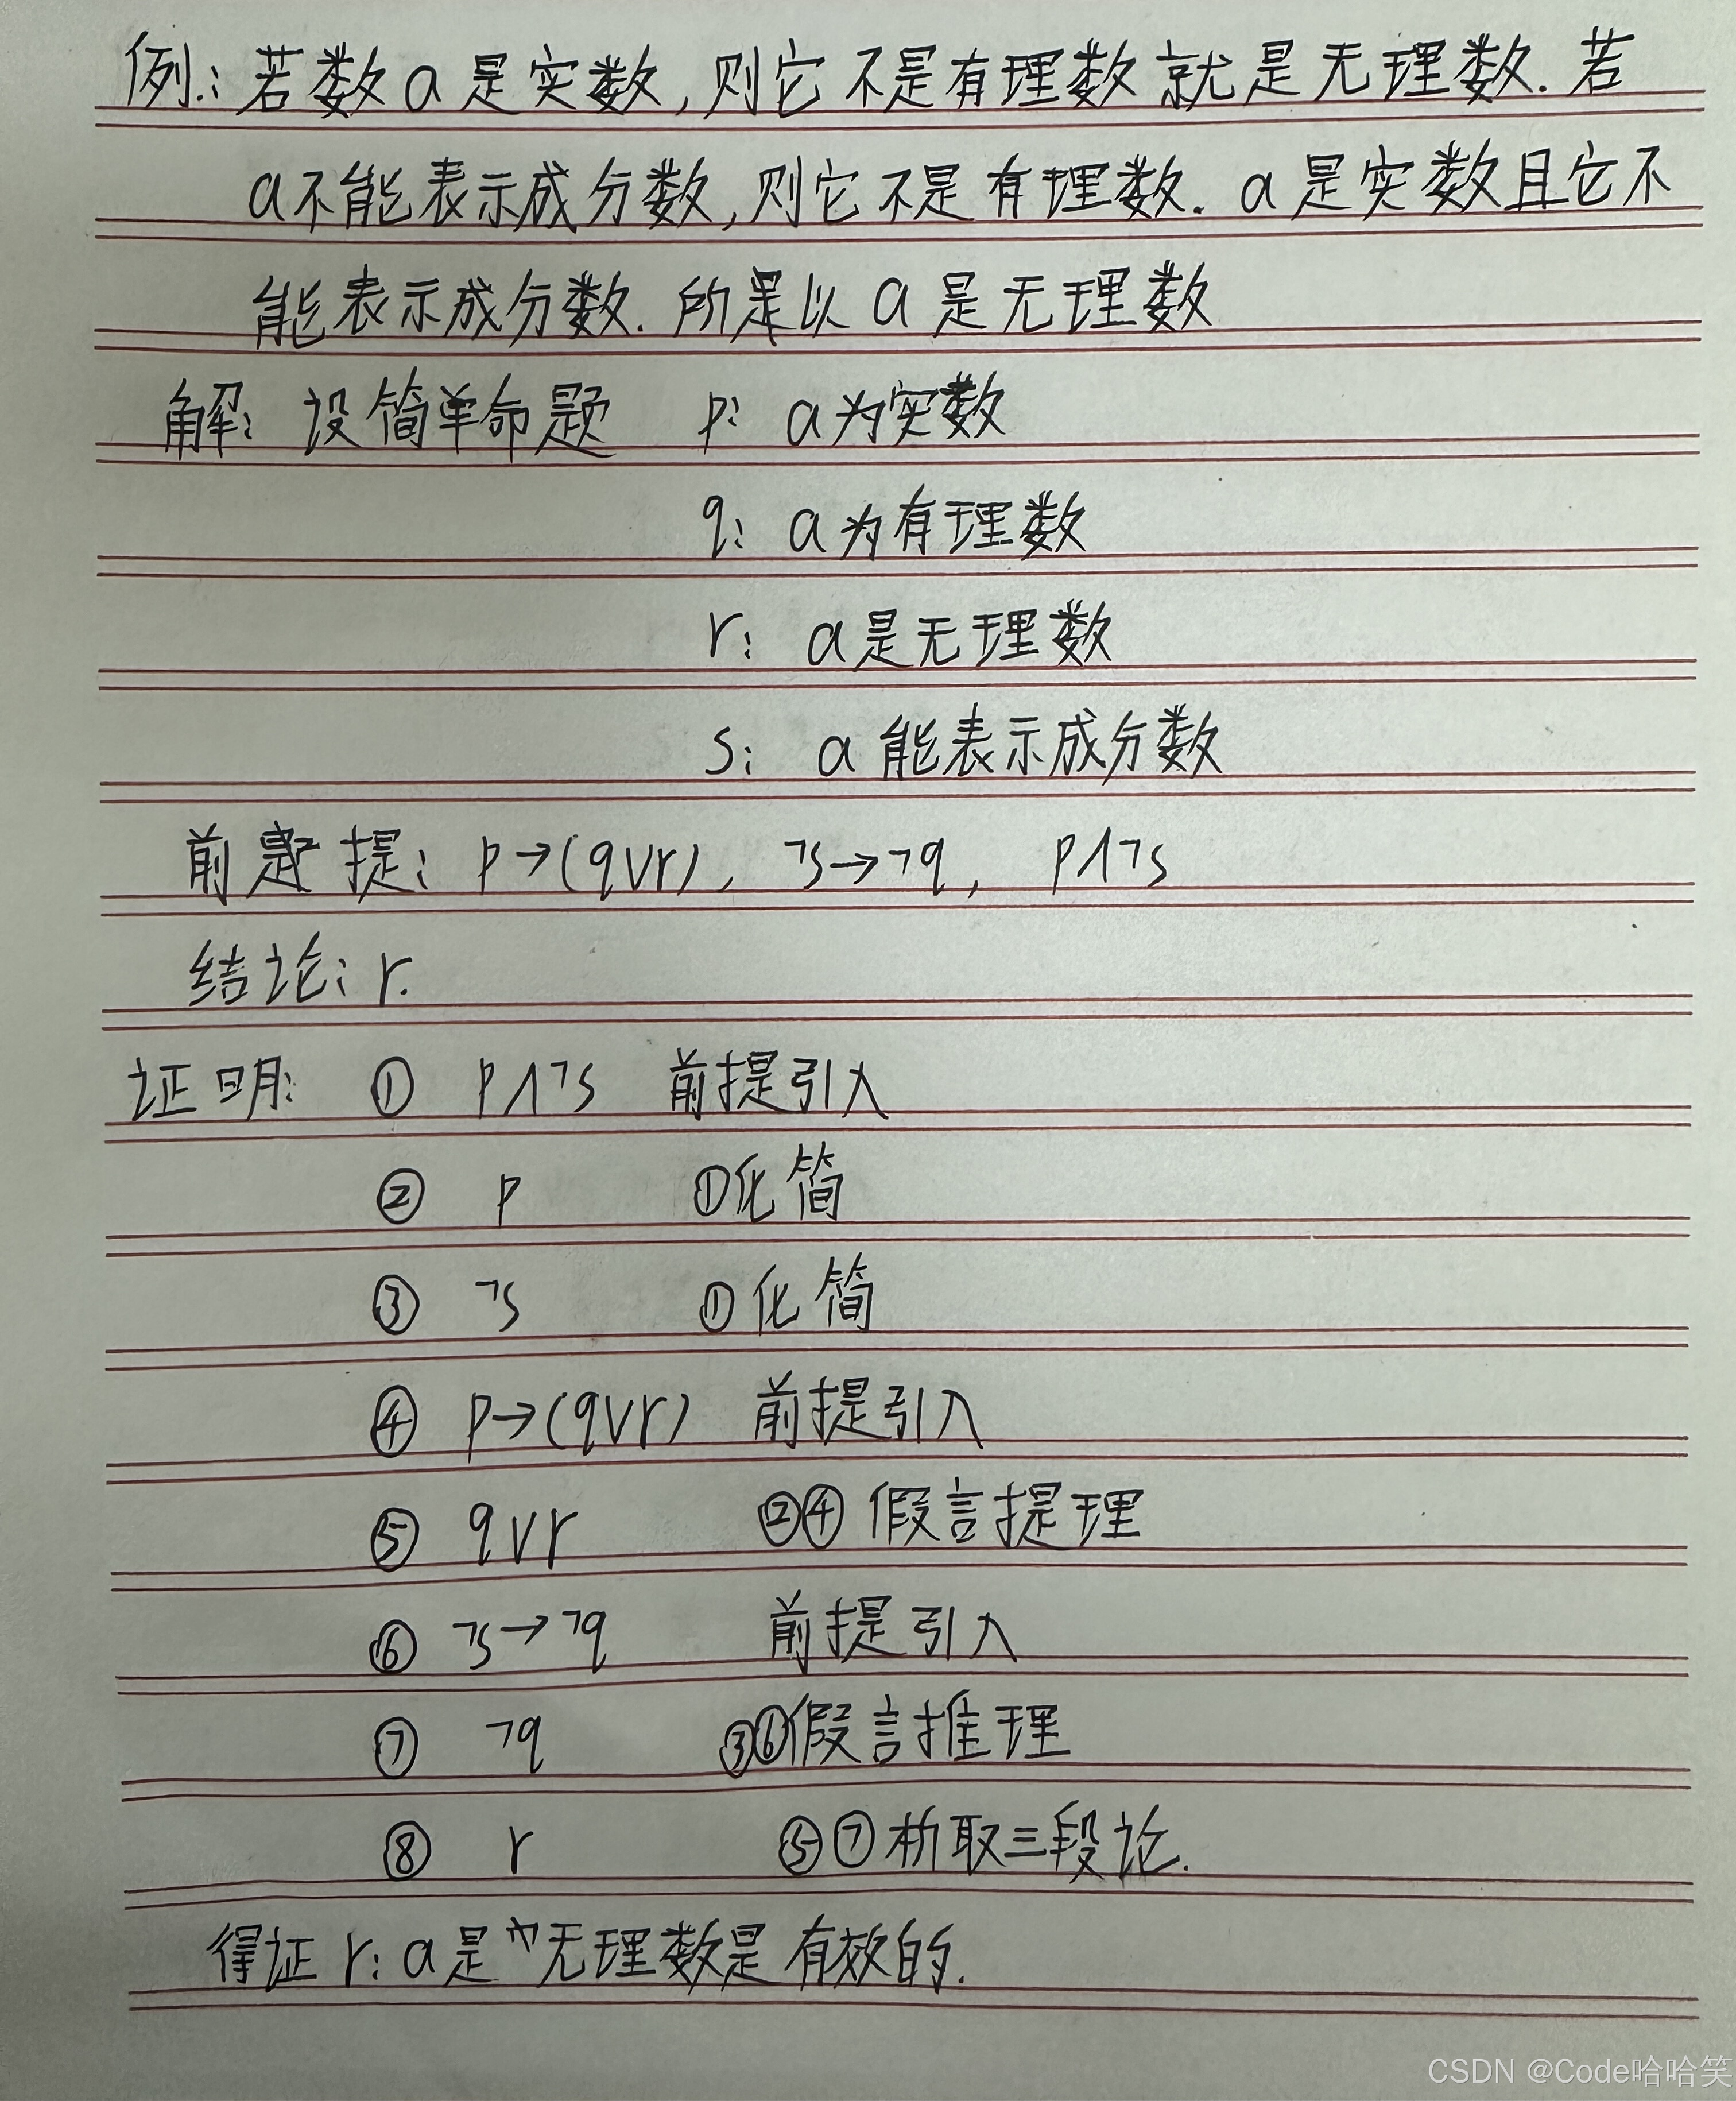 例:若数a是实数,则它不是有理数就是无理数.若
a不能表示成分数,则它不是有理数. a是实数且它不
能表示成分数.所是以a是无理数
解:设简单命题 p: a为实数
q: a为有理数
r: a是无理数
s: a能表示成分数
前提: p→(q∨r), ¬s→¬q, p∧¬s
结论: r.
证明: ① p∧¬s 前提引入
② p ①化简
③ ¬s ①化简
④ p→(q∨r) 前提引入
⑤ q∨r ②④假言提理
⑥ ¬s→¬q 前提引入
⑦ ¬q ③⑥假言推理
⑧ r ⑤⑦析取三段论.
得证 r: a是无理数是有效的.
CSDN @Code哈哈笑